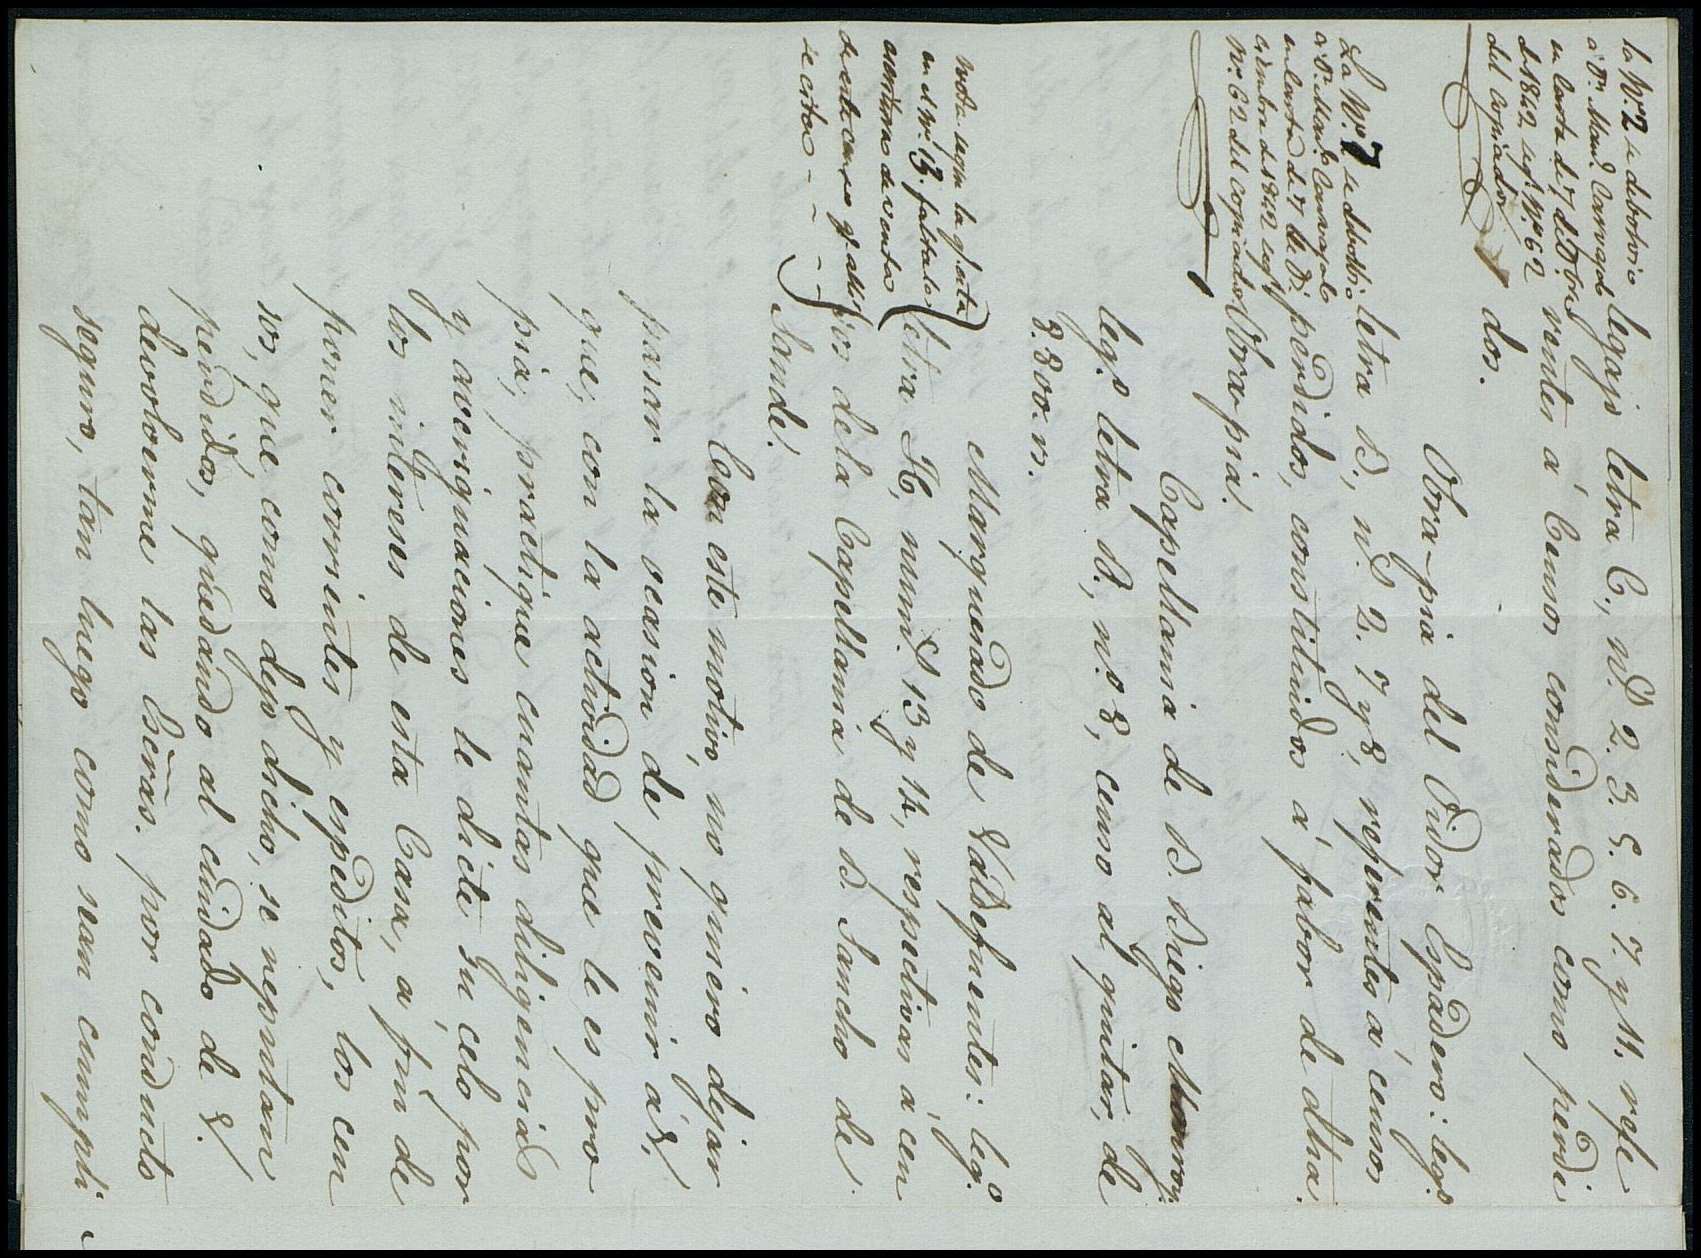 la Nº. 2 se debolvio
a Dn. Manl. Carvajal
en Carta de 7 de Dbre.
de 1842 Nº 62
del copiador
legajo letra C, nos. 2. 3. 5. 6. 7. y 11. refe
rentes á Censos considerados como perdi
dos.
Obra-pia del Oidor Espadero: lego.
La Nº. 7 se devolvio
a Dn. Manl. Carvajal
en Carta de 7 de Di
ciembre de 1842
Nº. 62 del Copiador
letra D, nos. 2. 7 y 8, referentes á censos
perdidos, constituidos á fabor de dha.
Obra-pia.
Capellania de D. Diego
lego. letra B, nº. 8, censo al quitar, de
8.800. rs.
Marquesado de Valdefuentes: lego.
Nota segun la qe. esta
en el Nº. 13. falta la
escritura de venta
de este censo qe. alli
se cita
letra H, nums. 13 y 14, respectivas á cen
sos de la Capellania de D. Sancho de
Sande.
Con este motivo, no quiero dejar
pasar la ocasion de prevenir á V.
que, con la actividad que le es pro
pia, practique cuantas diligencias
y averiguaciones le dicte su celo por
los intereses de esta Casa, a fin de
poner corrientes y espeditos, los cen
sos, que como dejo dicho, se reputan
perdidos, quedando al cuidado de V.
devolverme las Escras. por conducto
seguro, tan luego como sean cumpli